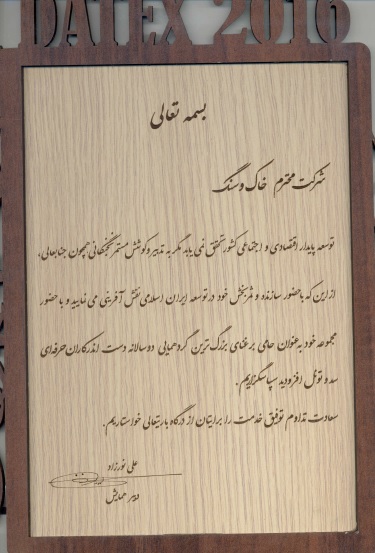 DATEX 2016
بسمه تعالی
شرکت محترم خاک و سنگ
توسعه پایدار اقتصادی و اجتماعی کشور تحقق نمی یابد مگر به تدبیر و کوشش مستمر نخبگانی همچون جنابعالی،
از این که با حضور سازنده و ثمربخش خود در توسعه ایران اسلامی نقش آفرینی می نمایید و با حضور
مجموعه خود به عنوان حامی بر غنای بزرگ ترین گردهمایی دوسالانه دست اندرکاران حرفه‌ای
سد و تونل افزودید سپاسگزاریم.
سعادت تداوم توفیق خدمت را برایتان از درگاه باریتعالی خواستاریم.
علی نورزاد
دبیر همایش